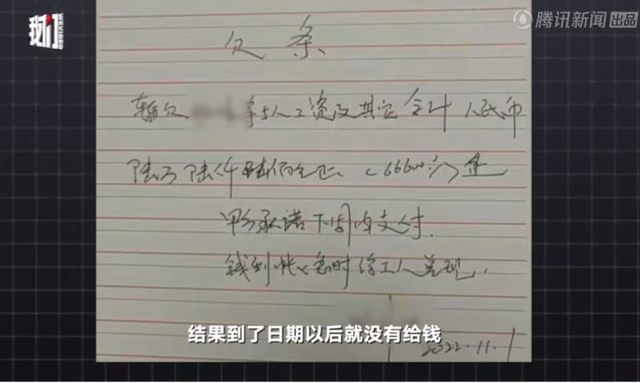 我们
WEVIDEO
腾讯新闻 出品
欠条
暂欠 等5人工资及其它合计人民币
陆万陆仟陆佰元正 (66600 元)整
甲方承诺下周内支付.
钱到帐及时给工人兑现.
2022.11.1
结果到了日期以后就没有给钱